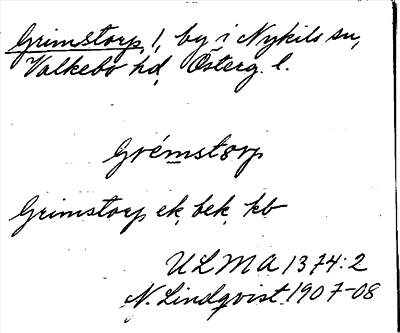 Grimstorp, 1, by i Nykils sn,
Valkebo hd, Österg. l.
Grémstorp
Grimstorp ek, bek, kb
ULMA 1374:2
N. Lindqvist 1907-08